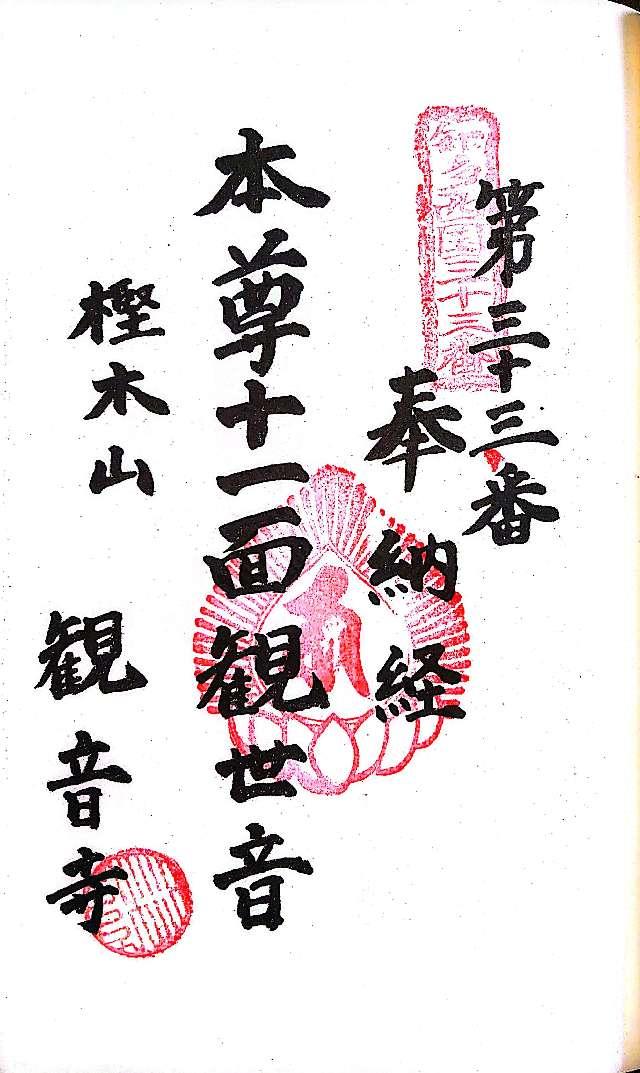 第三十三番
奉納経
本尊十一面観世音
樫木山
観音寺